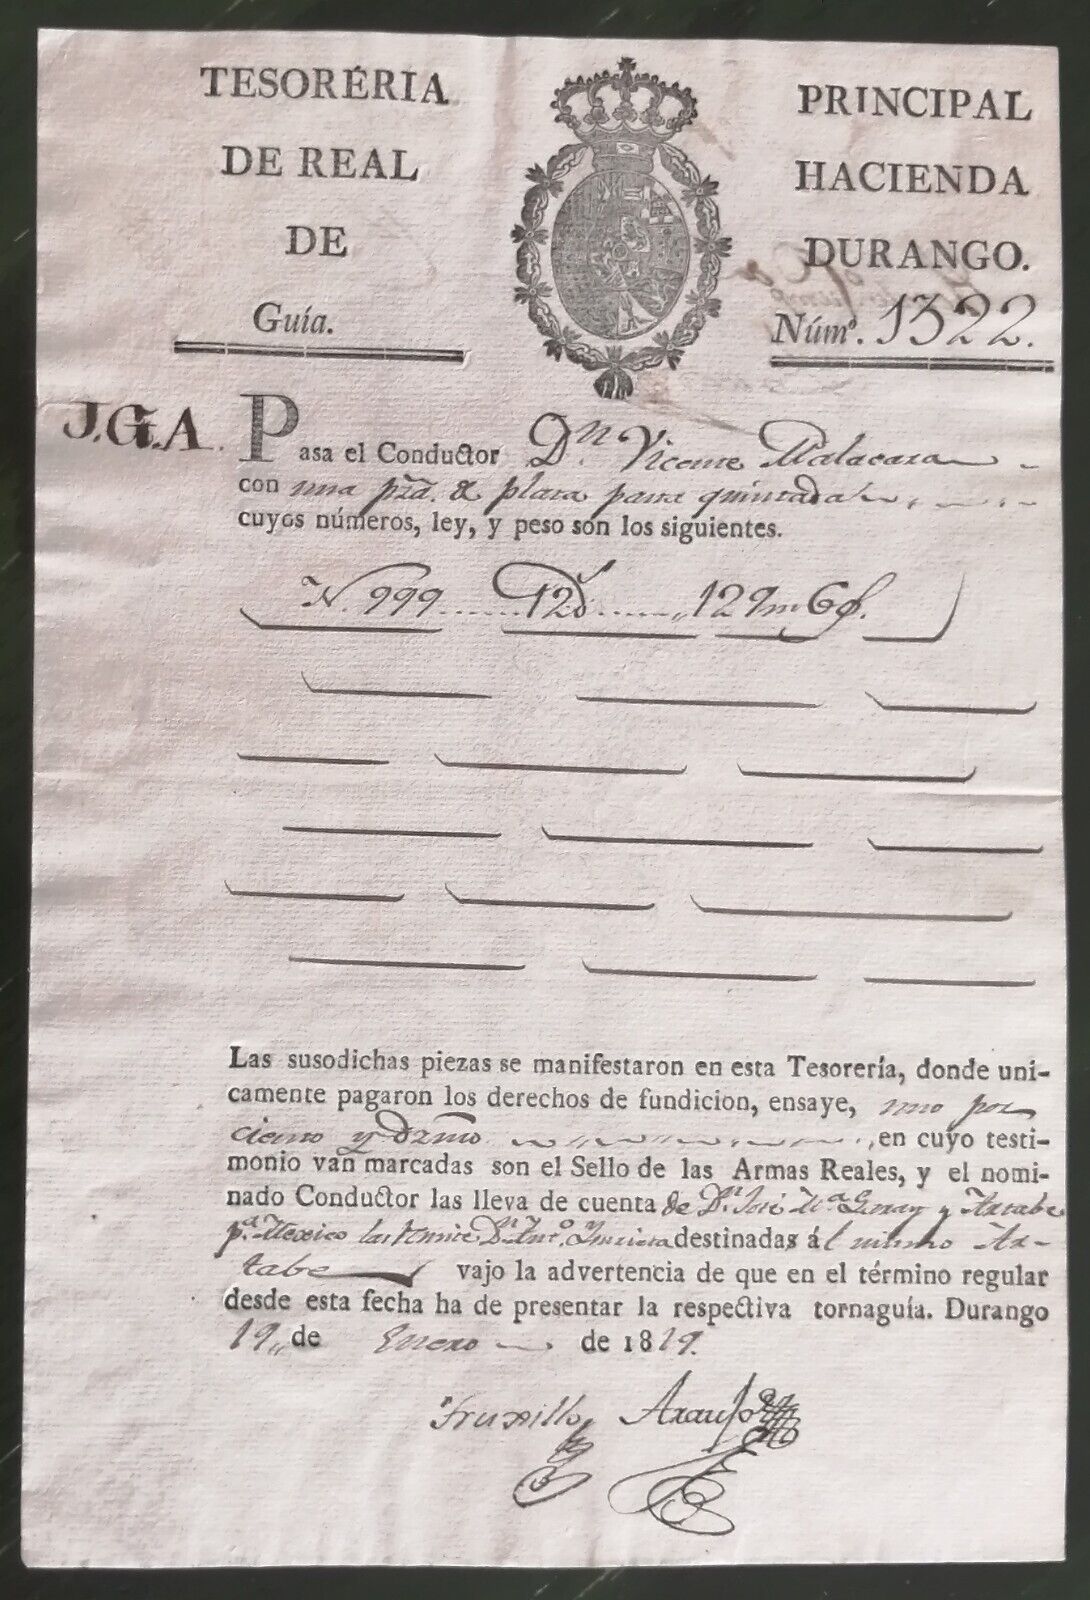 TESORÉRIA PRINCIPAL
DE REAL HACIENDA
DE DURANGO.
Guía. Núm.º 1322.
J.G.A. Pasa el Conductor Dn. Vicente Malacara
con una pza. de plata pasta quintada
cuyos números, ley, y peso son los siguientes.
N. 999 12ds 129m 6o.
Las susodichas piezas se manifestaron en esta Tesorería, donde uni-
camente pagaron los derechos de fundicion, ensaye, uno por
ciento y dzmo en cuyo testi-
monio van marcadas son el Sello de las Armas Reales, y el nomi-
nado Conductor las lleva de cuenta de Dn. José Ma. y Artabe
pa. Mexico las remite Dn. destinadas ál mismo Ar-
tabe vajo la advertencia de que en el término regular
desde esta fecha ha de presentar la respectiva tornaguía. Durango
19 de Enero de 1819.
Truxillo Araujo